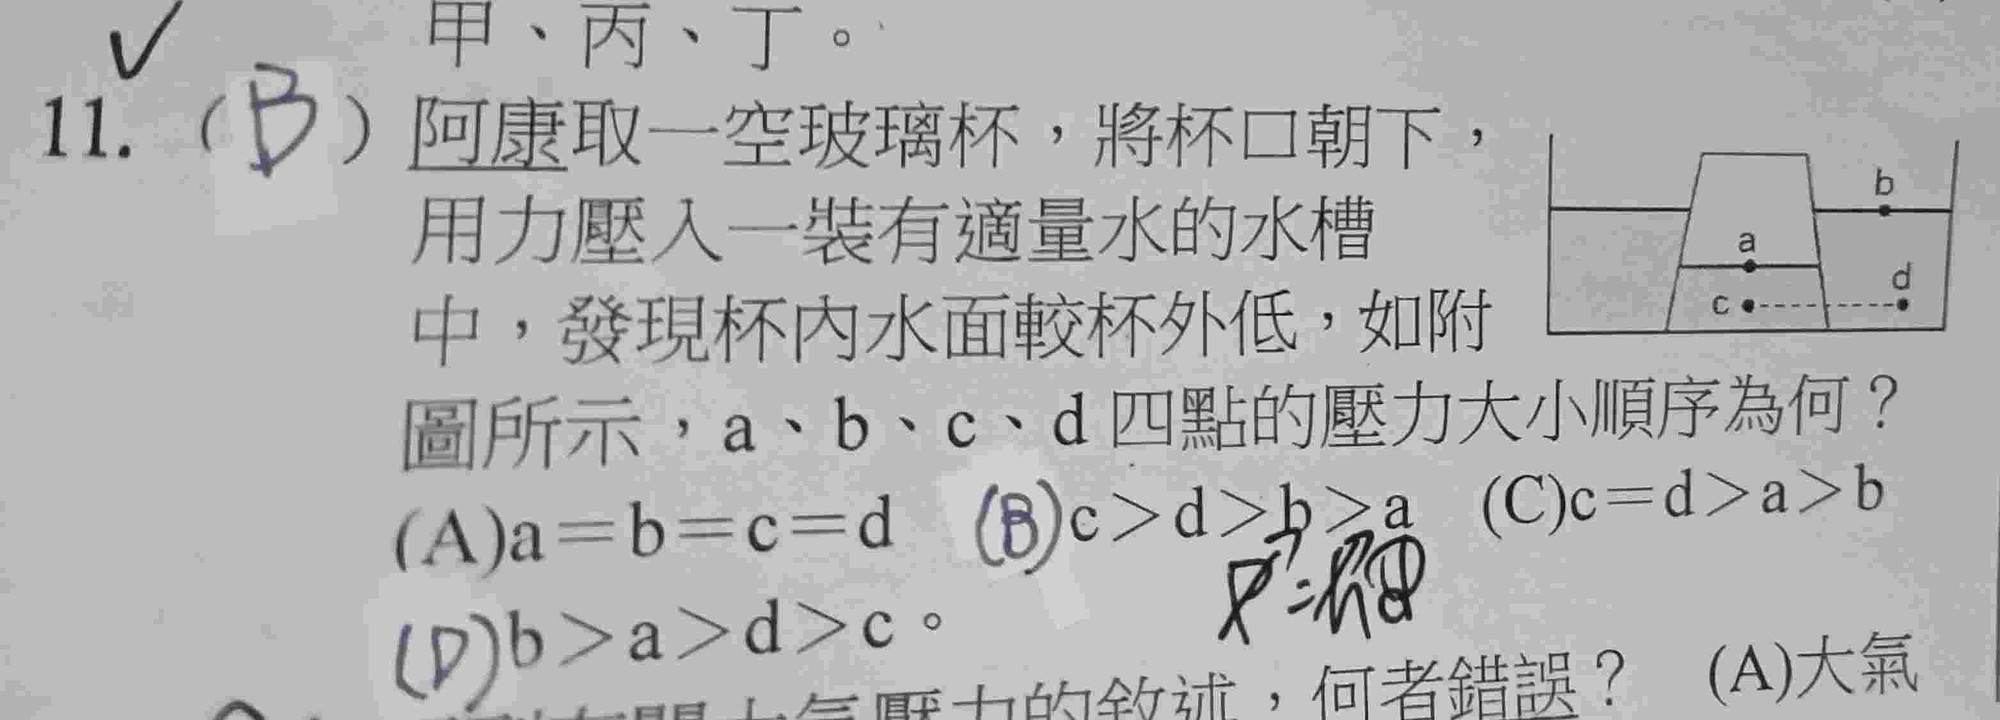 甲、丙、丁。
11.（B）阿康取一空玻璃杯，將杯口朝下，
用力壓入一裝有適量水的水槽
中，發現杯內水面較杯外低，如附
圖所示，a、b、c、d 四點的壓力大小順序為何？
(A)a＝b＝c＝d (B)c＞d＞b＞a (C)c＝d＞a＞b
(D)b＞a＞d＞c。
b
a
d
c
壓力的敘述，何者錯誤？ (A)大氣